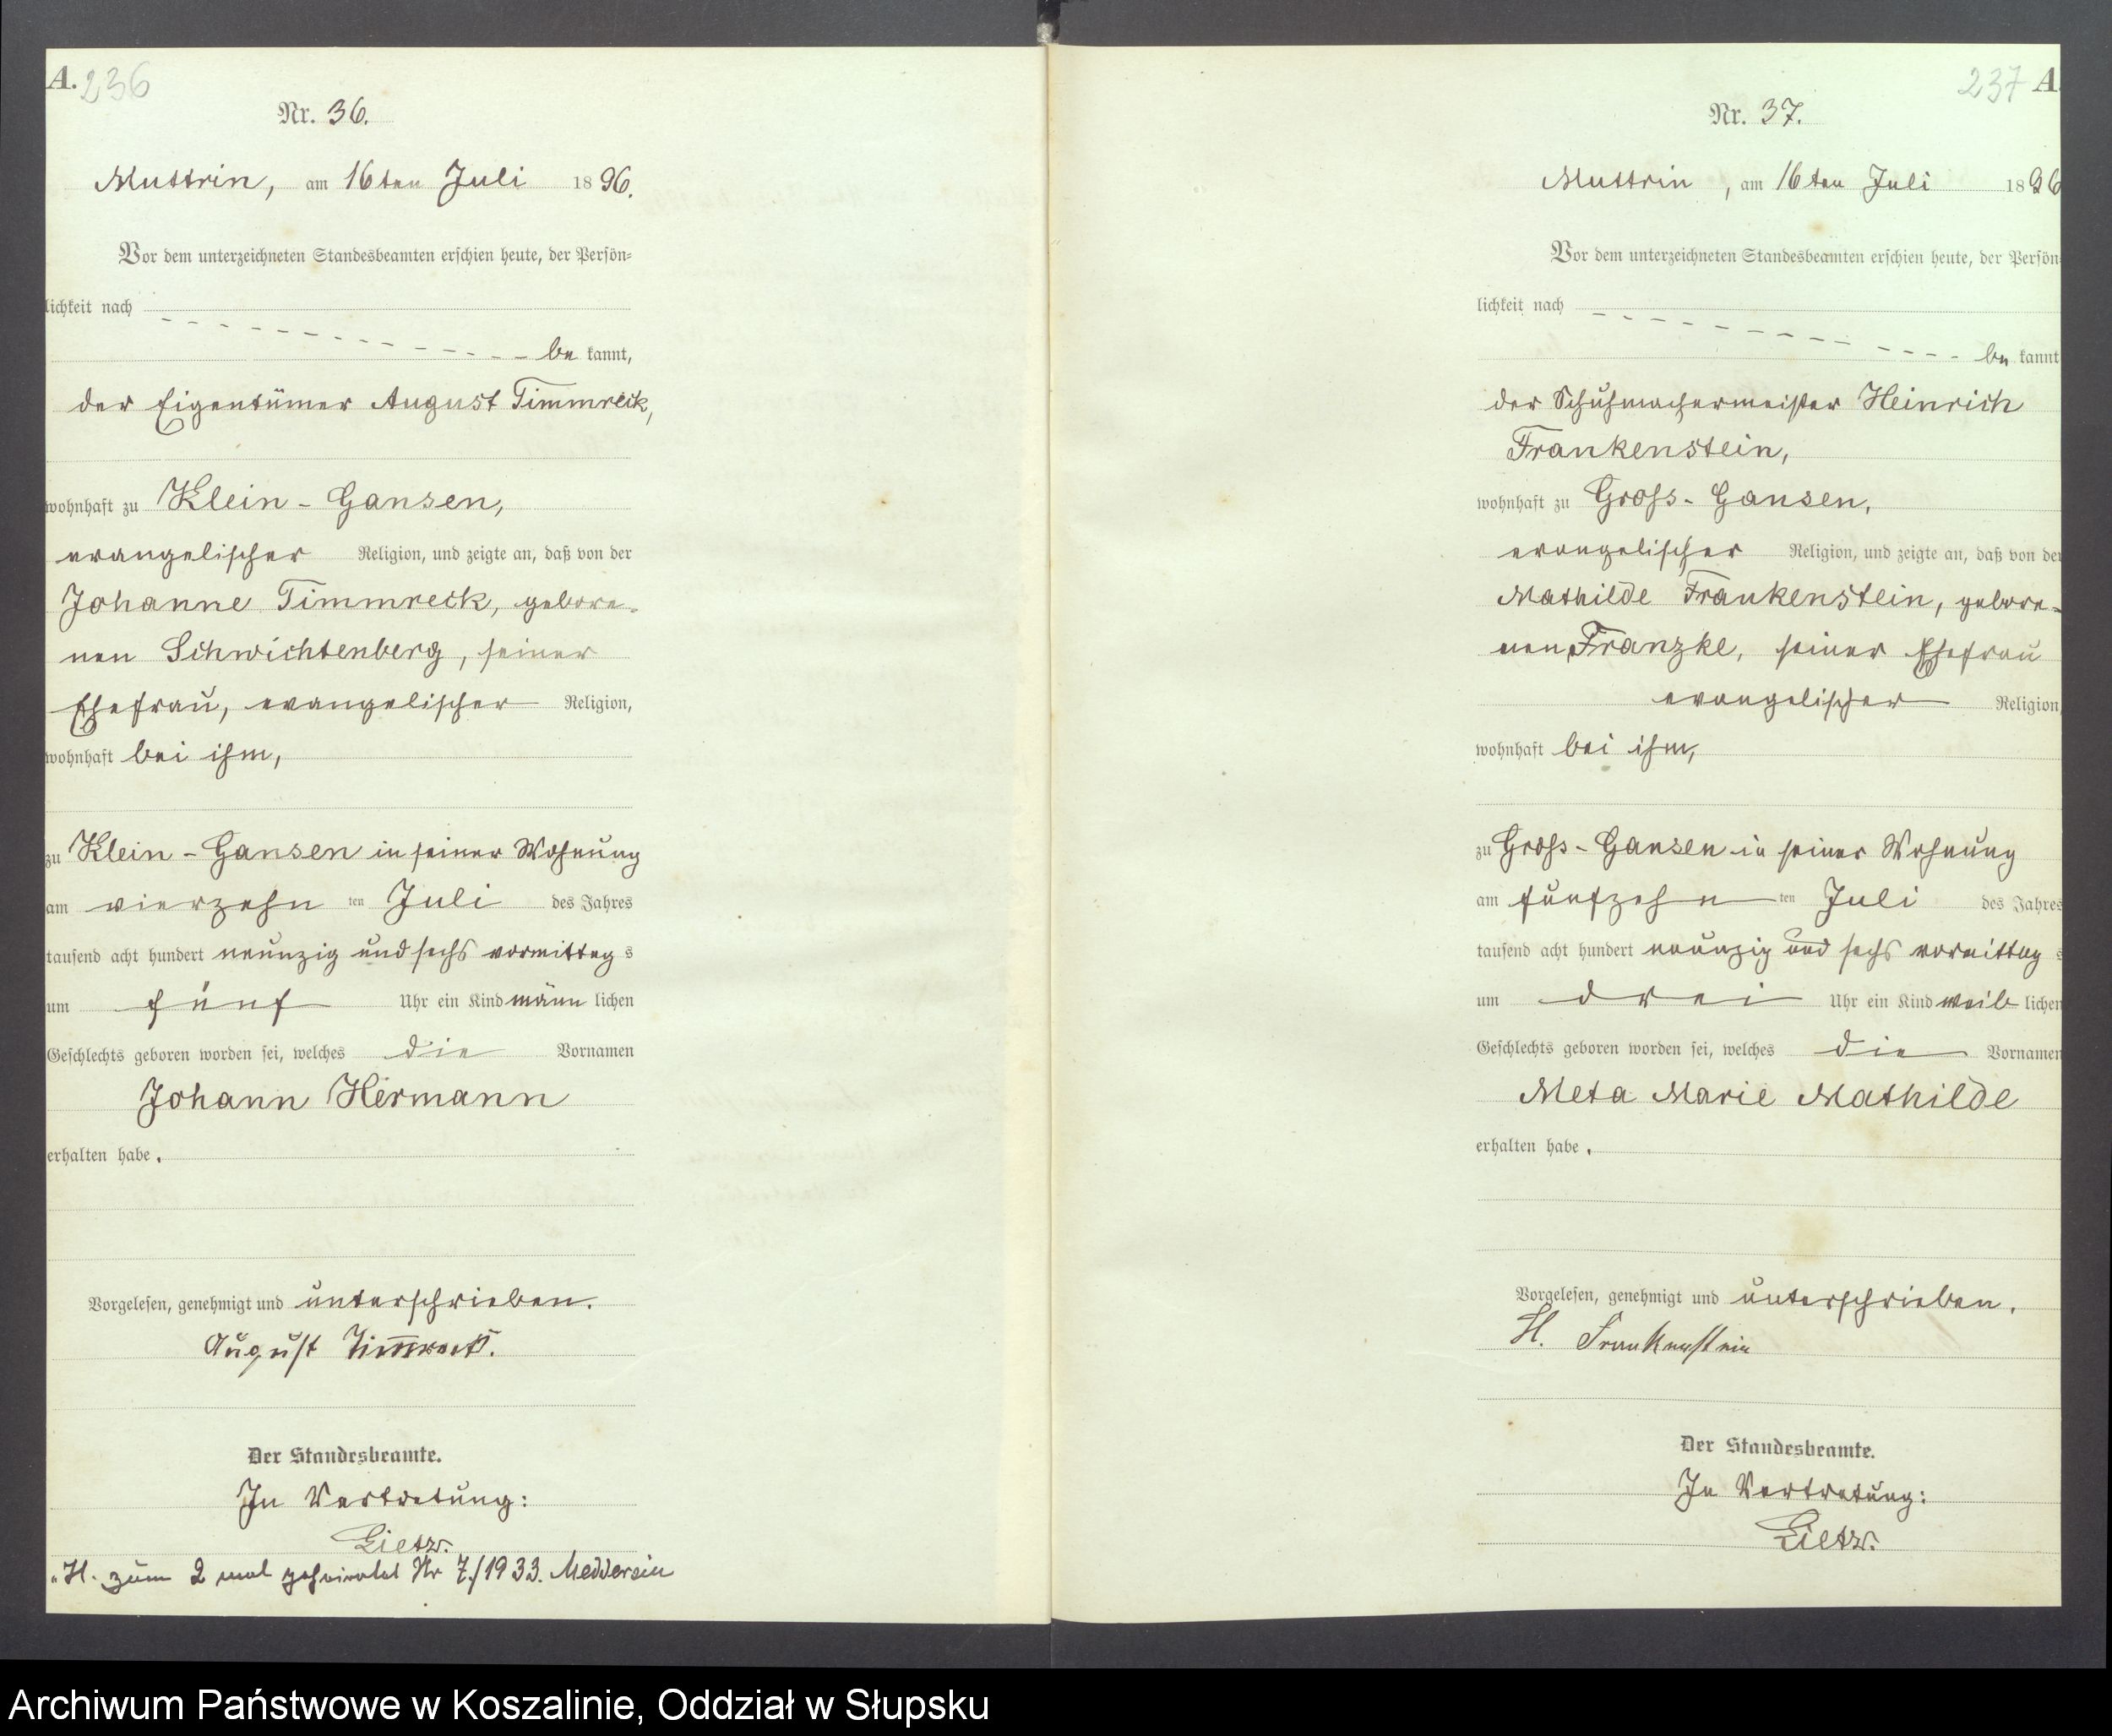 A. 236
Nr. 36.
Muttrin, am 16ten Juli 1896.
Vor dem unterzeichneten Standesbeamten erschien heute, der Persön-
lichkeit nach
be kannt,
der Eigentümer August Timmreck,
wohnhaft zu Klein-Gansen,
evangelischer Religion, und zeigte an, daß von der
Johanne Timmreck, gebore-
nen Schwichtenberg, seiner
Ehefrau, evangelischer Religion,
wohnhaft bei ihm,
zu Klein-Gansen in seiner Wohnung
am vierzehn ten Juli des Jahres
tausend acht hundert neunzig und sechs vormittag s
um fünf Uhr ein Kind männ lichen
Geschlechts geboren worden sei, welches die Vornamen
Johann Hermann
erhalten habe.
Vorgelesen, genehmigt und unterschrieben.
August Timmreck.
Der Standesbeamte.
In Vertretung:
Lietz.
H. zum 2 mal geheiratet Nr 7/1933. Medderein
237 A.
Nr. 37.
Muttrin, am 16ten Juli 1896
Vor dem unterzeichneten Standesbeamten erschien heute, der Persön-
lichkeit nach
be kannt
der Schuhmachermeister Heinrich
Frankenstein,
wohnhaft zu Gross-Gansen,
evangelischer Religion, und zeigte an, daß von der
Mathilde Frankenstein, gebore-
nen Franzke, seiner Ehefrau
evangelischer Religion,
wohnhaft bei ihm,
zu Gross-Gansen in seiner Wohnung
am fünfzehn ten Juli des Jahres
tausend acht hundert neunzig und sechs vormittag s
um drei Uhr ein Kind weib lichen
Geschlechts geboren worden sei, welches die Vornamen
Meta Marie Mathilde
erhalten habe.
Vorgelesen, genehmigt und unterschrieben.
H. Frankenstein
Der Standesbeamte.
In Vertretung:
Lietz.
Archiwum Państwowe w Koszalinie, Oddział w Słupsku